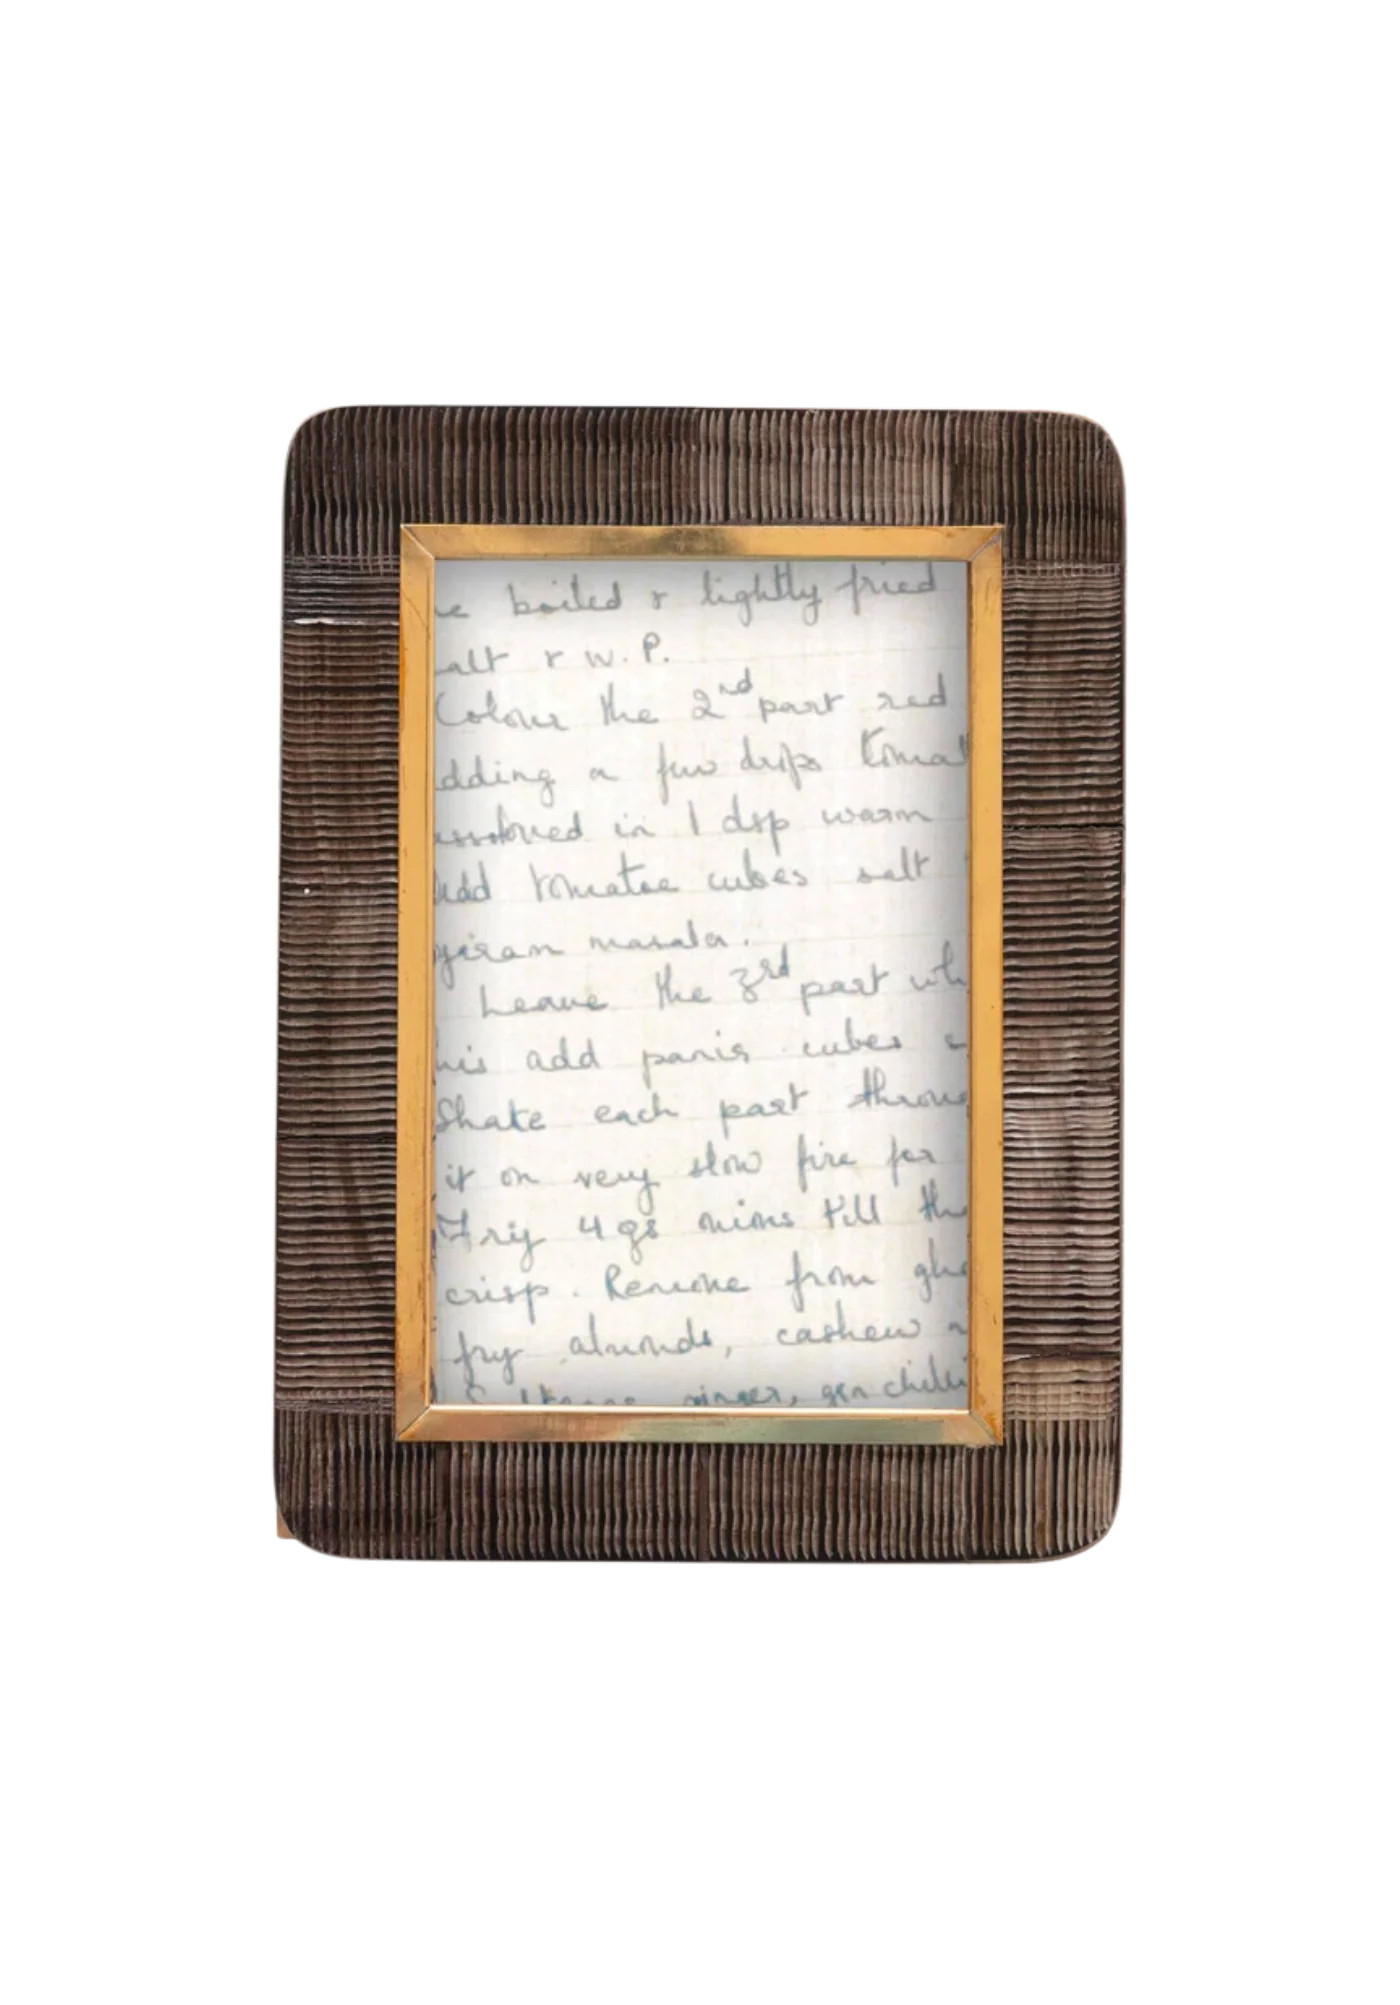 boiled & lightly fried
alt & W.P.
Colour the 2nd part red
dding a few drops tomat
in 1 dsp warm
add tomatoe cubes salt
garam masala.
Leave the 3rd part wh
his add panir cubes
Shake each part throug
it on very slow fire for
Fry 4 mins till the
crisp. Remove from ghe
fry almonds, cashew n
ginger, grn chilli